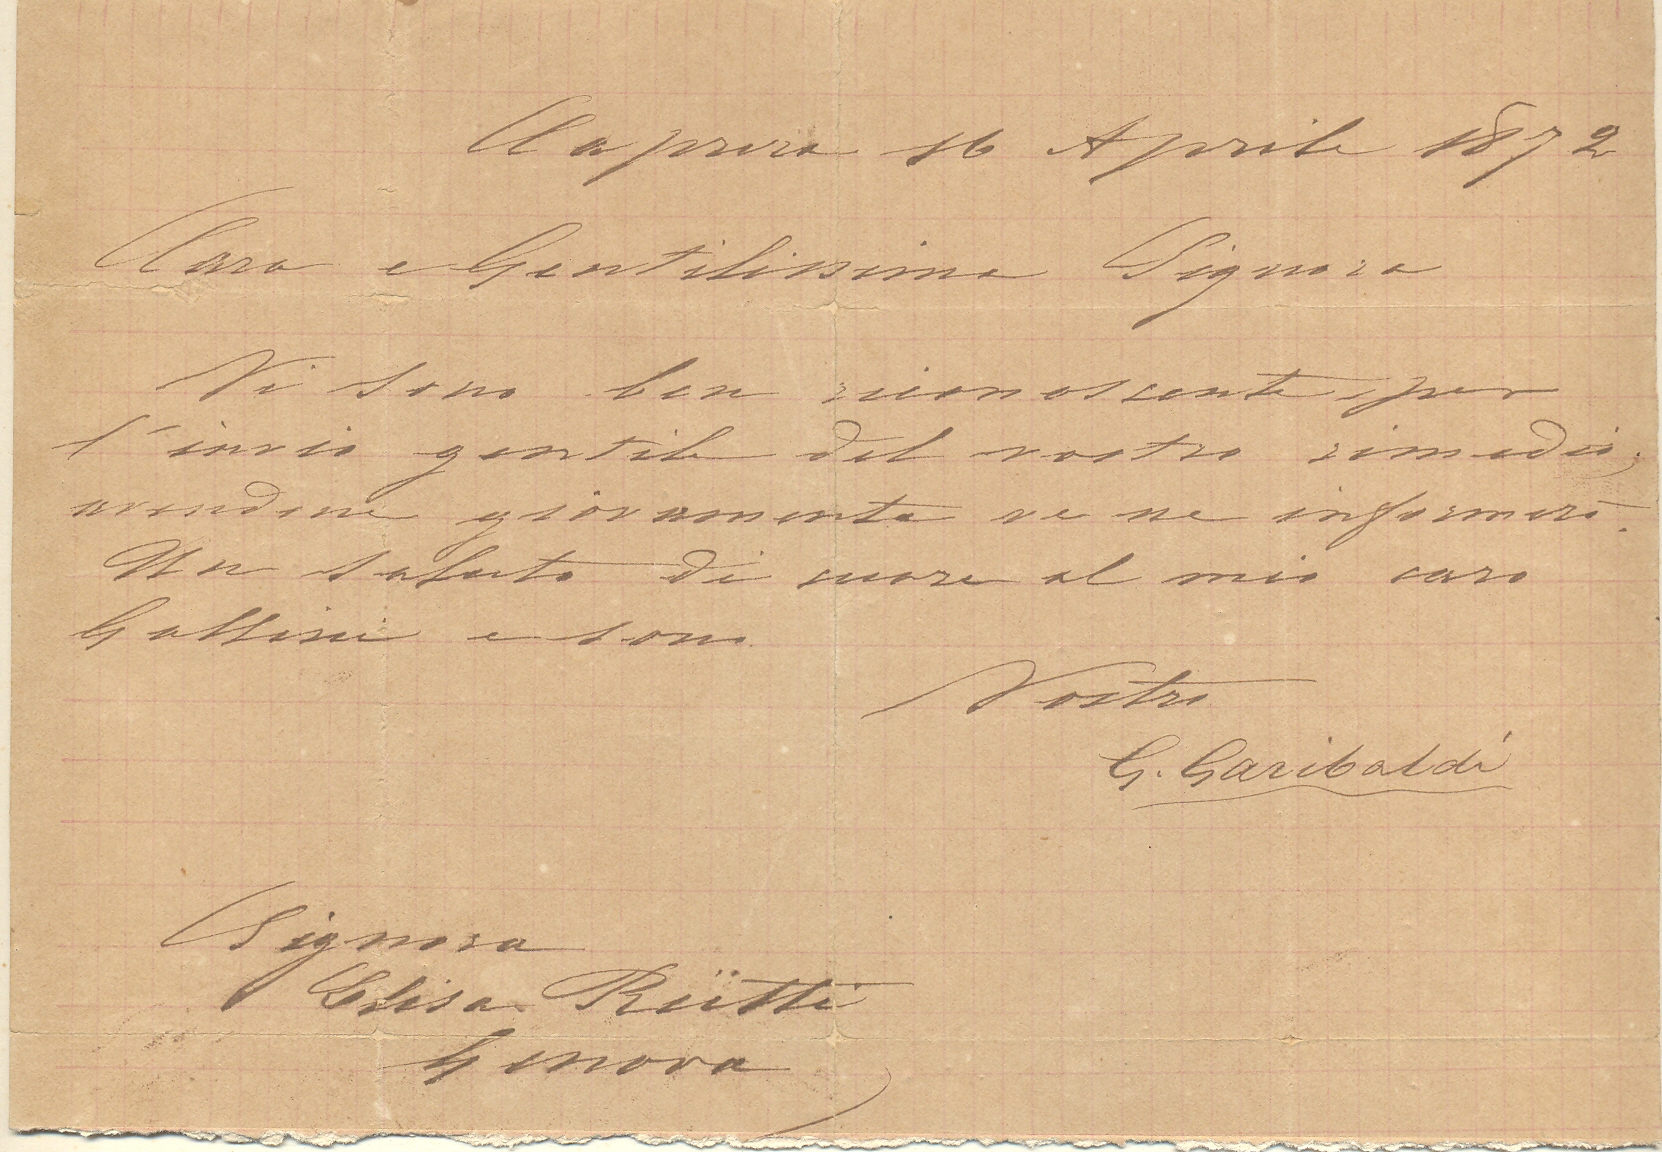 Caprera 16 Aprile 1872
Cara e Gentilissima Signora
Vi sono ben riconoscente per
l'invio gentile del vostro rimedio.
avendone giovamento ve ne informerò.
Un saluto di cuore al mio caro
e sono
Vostro
G. Garibaldi
Signora
Elisa Rütti
Genova